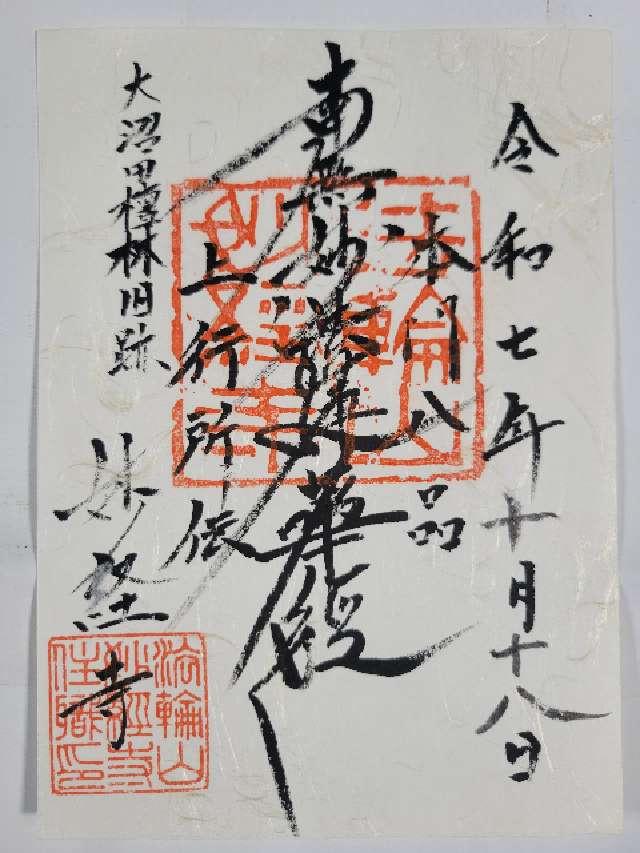 令和七年十月十八日
本門八品
南無妙法蓮華経
上行所伝
大沼田檀林旧跡
妙経寺
法輪山
妙経寺
法輪山
妙経寺
住職印